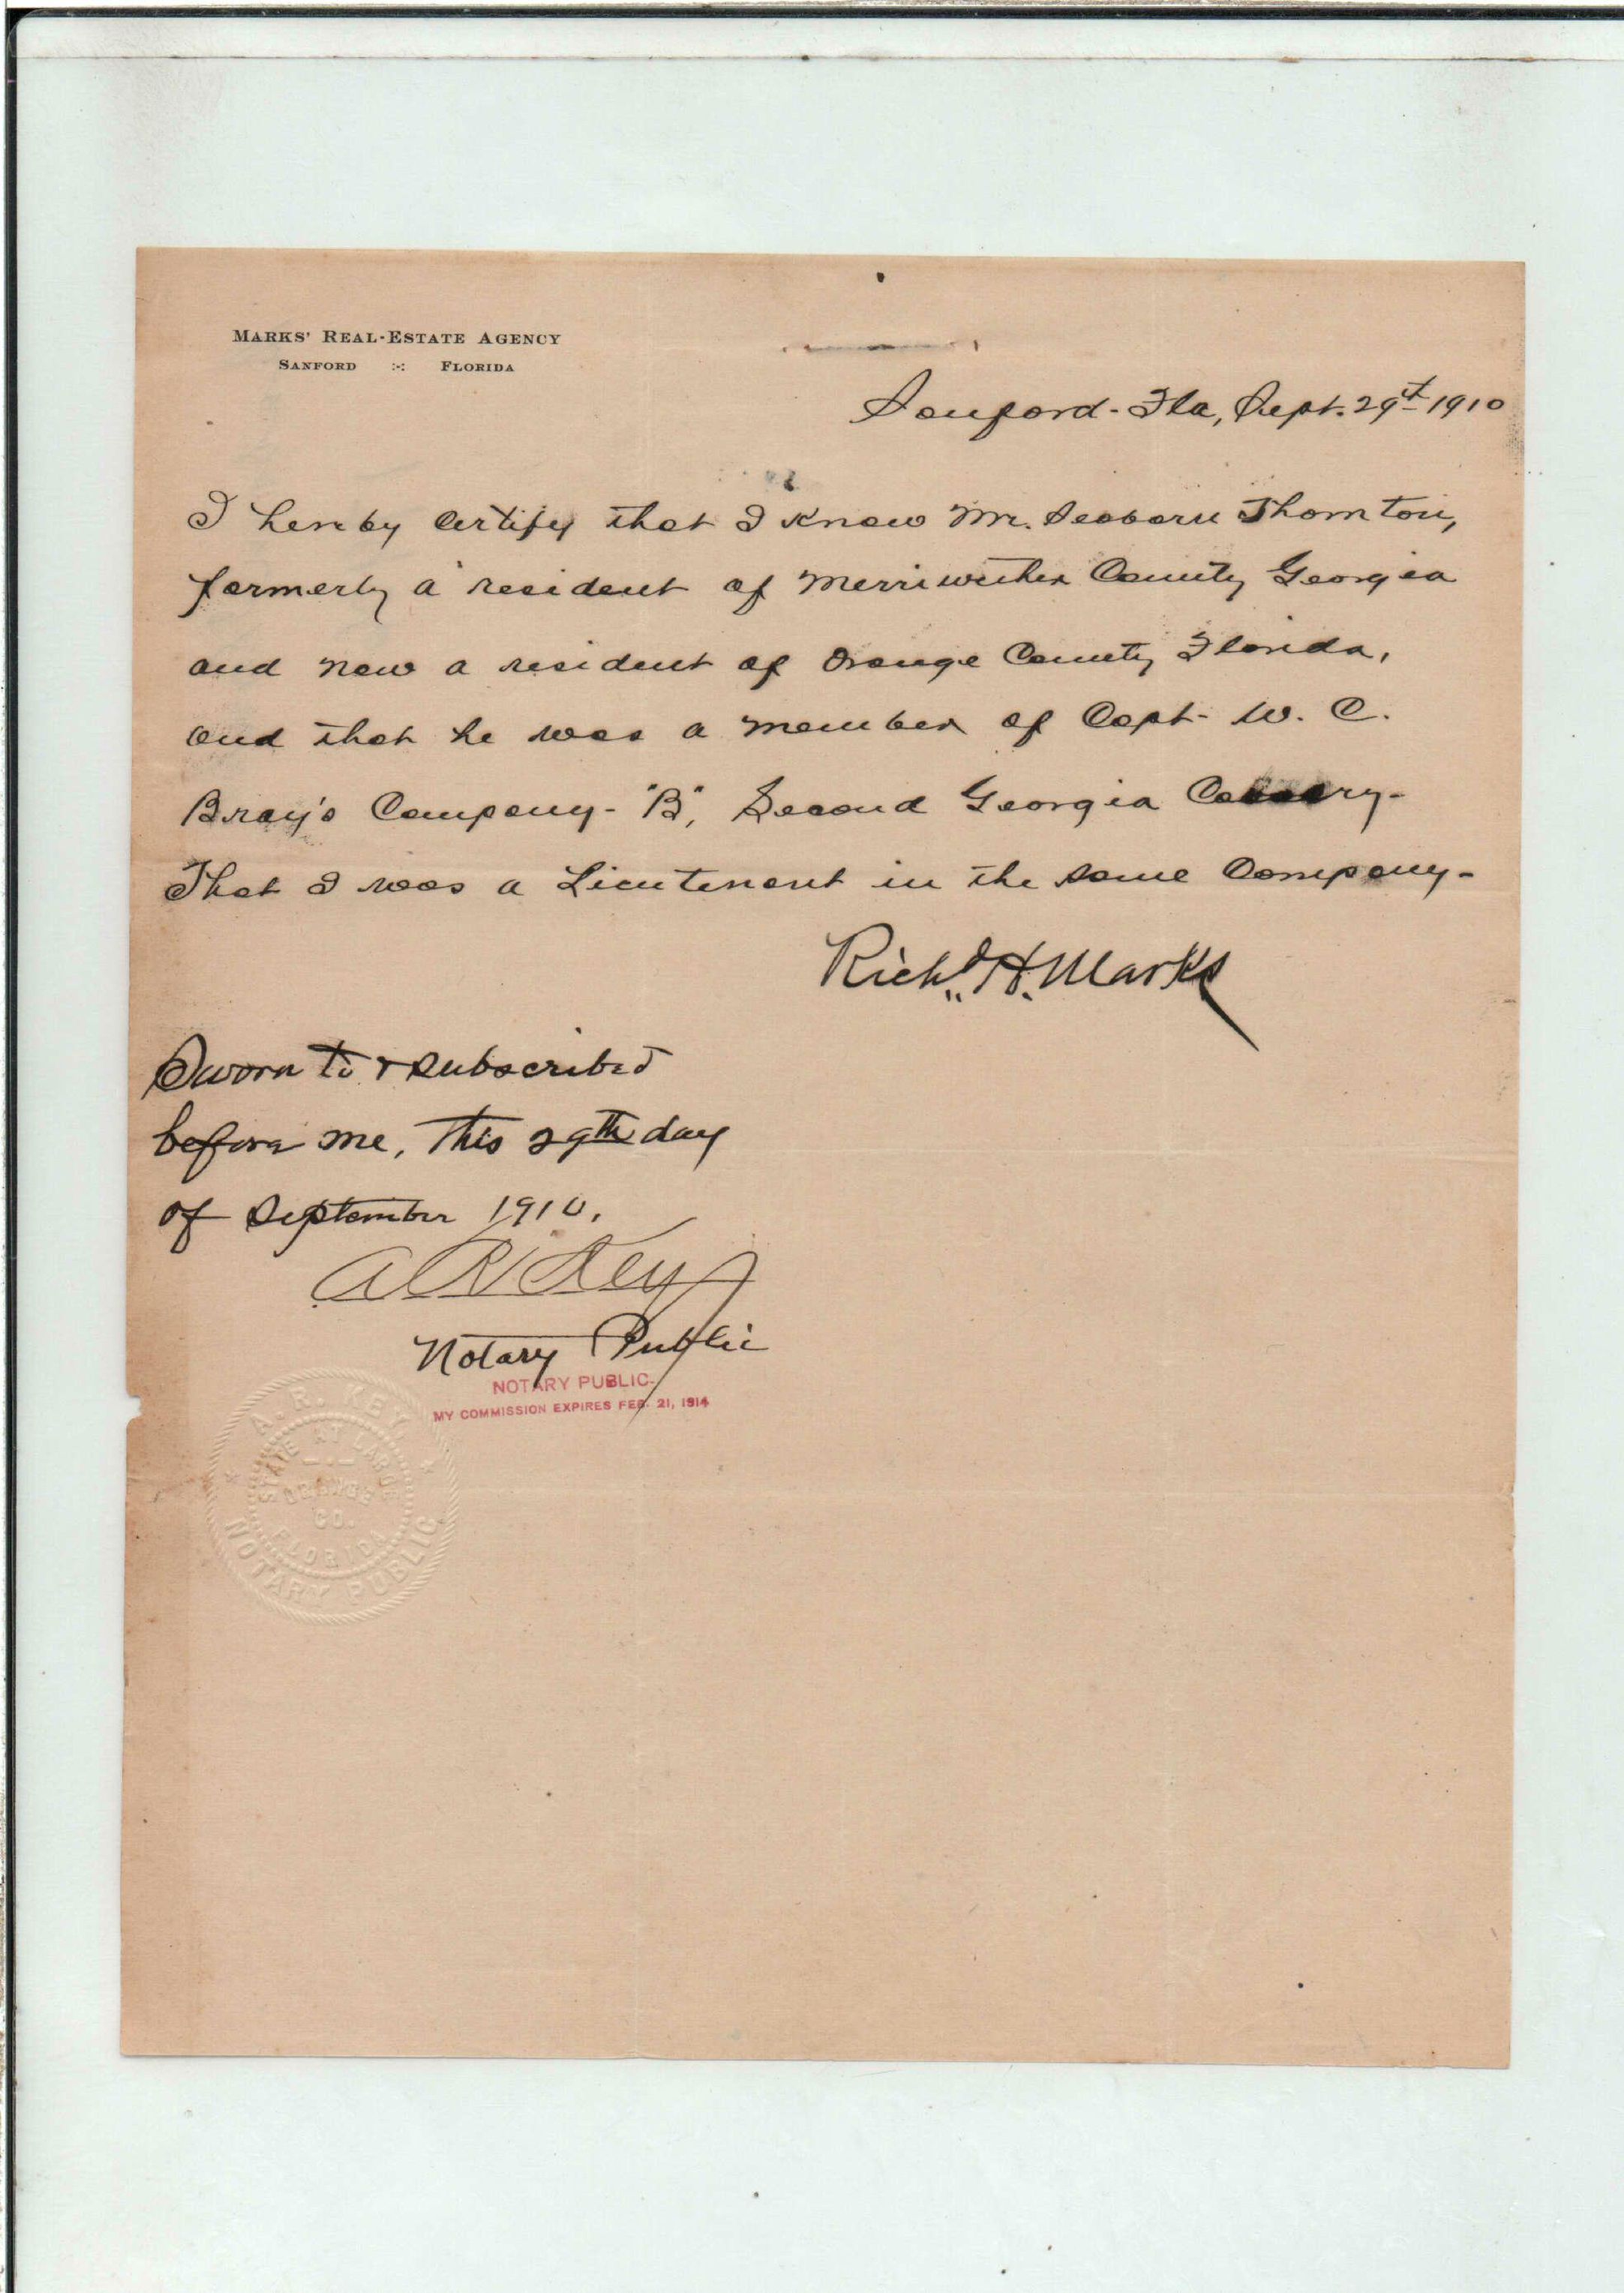 MARKS' REAL-ESTATE AGENCY
SANFORD :-: FLORIDA
Sanford - Fla, Sept. 29st 1910
I hereby certify that I know Mr. Seaborn Thornton,
formerly a resident of Merriwether County Georgia
and now a resident of Orange County Florida,
and that he was a member of Capt - W. C.
Bray's Company - "B", Second Georgia Cavalry -
That I was a Lieutenant in the same Company -
Richd. H. Marks
Sworn to & subscribed
before me, this 29th day
of September 1910.
A R Key
Notary Public
NOTARY PUBLIC.
MY COMMISSION EXPIRES FEB. 21, 1914
A. R. KEY
STATE AT LARGE
ORANGE
CO.
FLORIDA
NOTARY PUBLIC